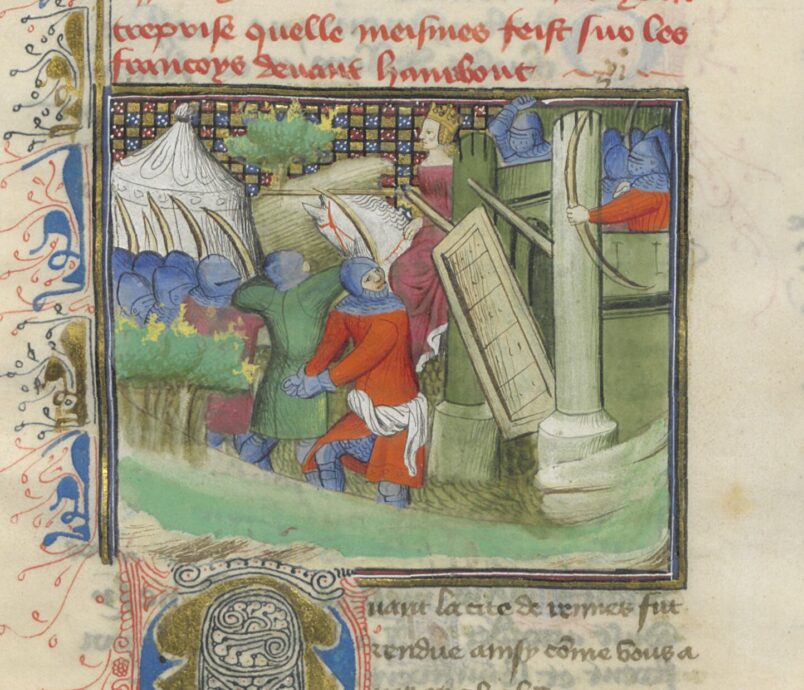 treprise quelle meismes feist suo les
francoys devant hambout
uant la cite de rennes fut
rendue ainsy come vous a